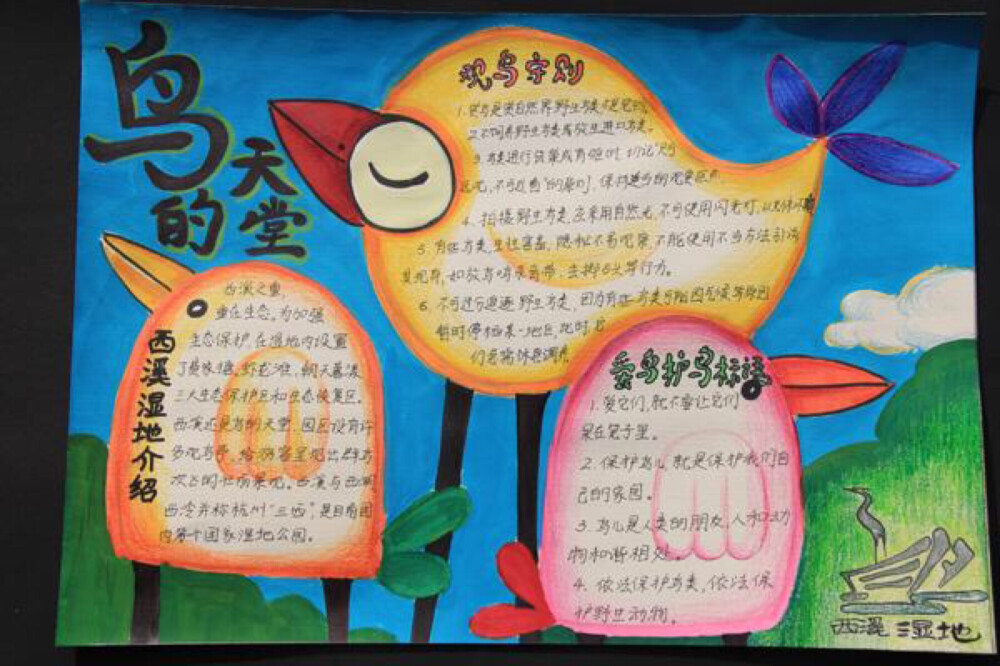 鸟的天堂
观鸟守则
1.赏鸟是赏自然界野生鸟类不是笼鸟。
2.不饲养野生鸟类或放生进口鸟类。
3.鸟类进行筑巢或育雏时,切记"只
远观,不可近看"的原则,保持适当的观赏距离
4.拍摄野生鸟类,应采用自然光,不可使用闪光灯,以免惊吓
5.有些鸟类,生性害羞,隐秘不易观察,不能使用不当方法引诱
其现身,如放鸟哨录音带、丢掷石头等行为。
6.不可过分追逐野生鸟类,因为有些鸟类可能因气候等原因
暂时停栖某一地区,此时它
们急需休息调养
西溪湿地介绍
西溪之重,
重在生态。为加强
生态保护,在湿地内设置
了费家塘、虾龙滩、朝天暮漾
三大生态保护区和生态恢复区。
西溪还是鸟的天堂,园区设有许
多观鸟亭,给游客呈现出群鸟
欢飞的壮丽景观。西溪与西湖
西泠并称杭州"三西",是目前国
内第一个国家湿地公园。
爱鸟护鸟标语
1.爱它们,就不要让它们
呆在笼子里。
2.保护鸟儿就是保护我们自
己的家园。
3.鸟儿是人类的朋友,人和动
物和谐相处。
4.依法保护鸟类,依法保
护野生动物。
西溪湿地